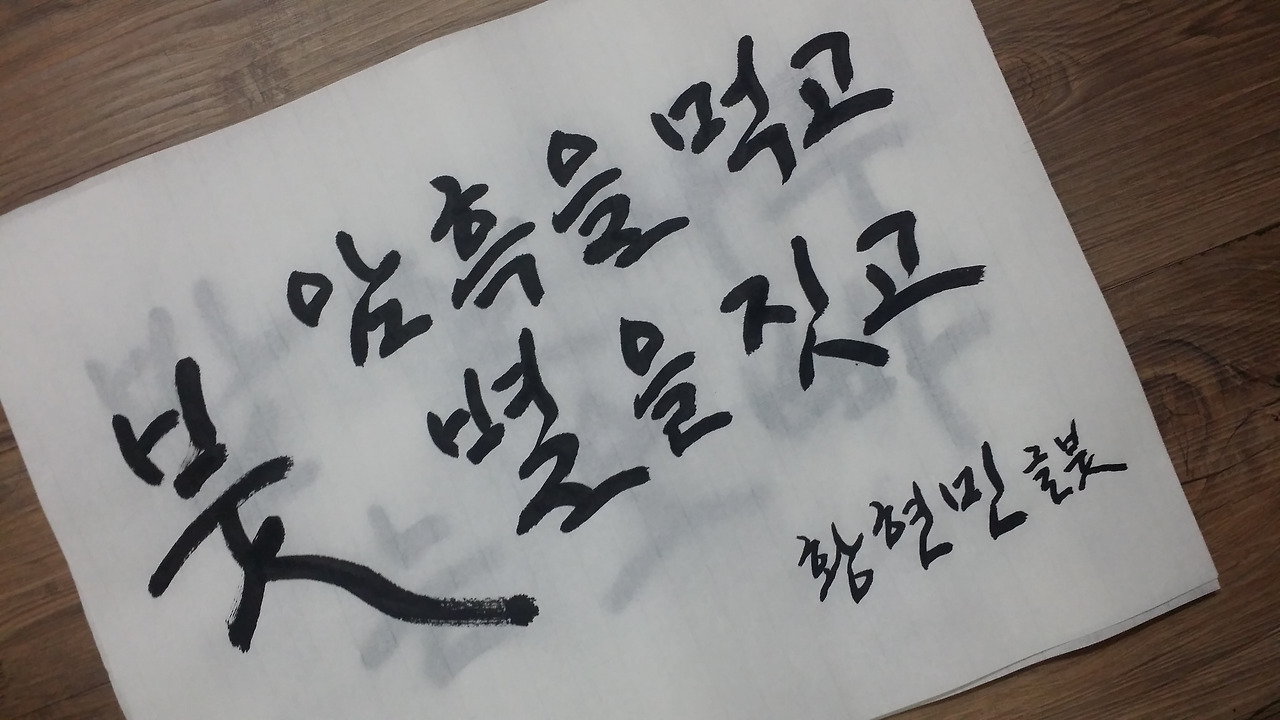 암흑을 먹고
별을 짓고
붓
황현민 글붓